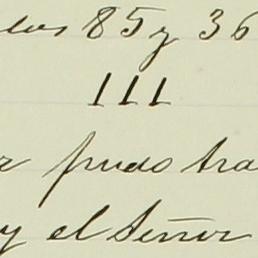 los 85 y 36
III
pudo tra
y el Señor